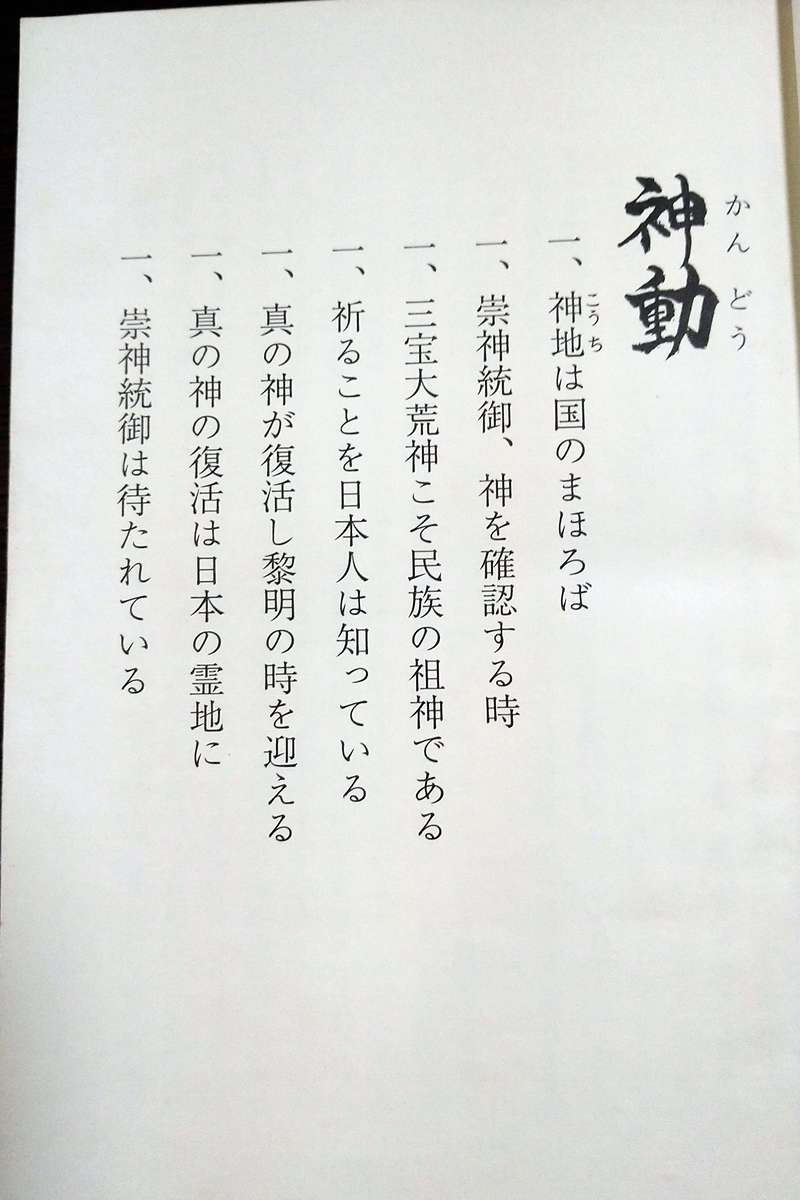 神動
かんどう
一、神地は国のまほろば
こうち
一、崇神統御、神を確認する時
一、三宝大荒神こそ民族の祖神である
一、祈ることを日本人は知っている
一、真の神が復活し黎明の時を迎える
一、真の神の復活は日本の霊地に
一、崇神統御は待たれている